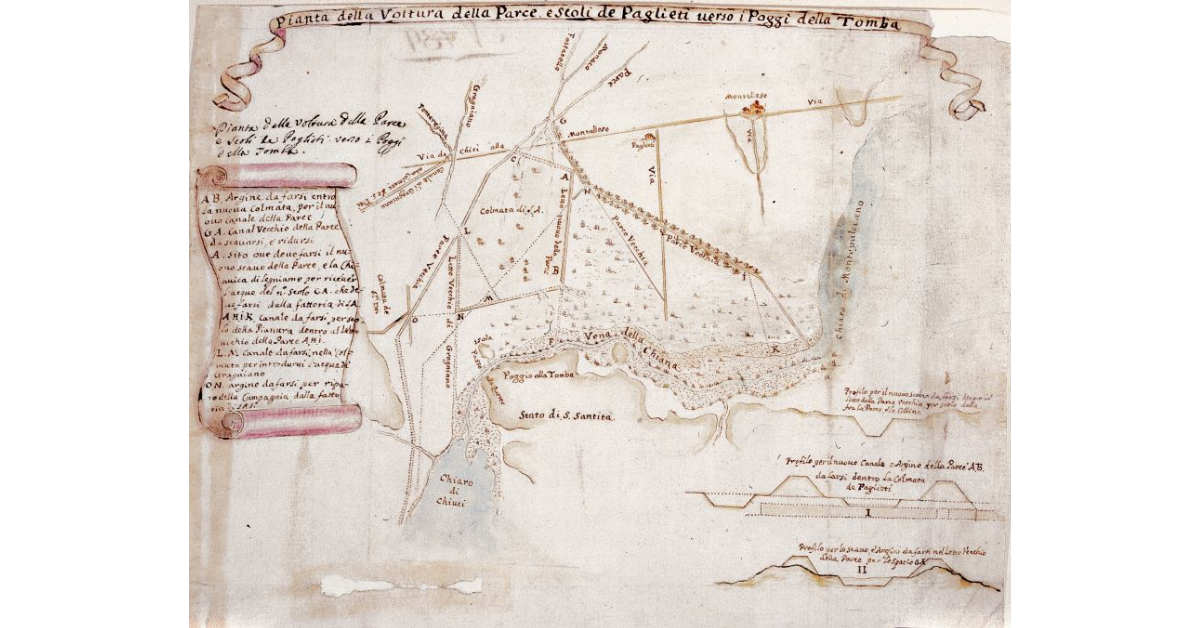 Pianta della Voltura della Parce e Scoli de Paglieti verso i Poggi della Tomba
Pianta delle voltura della Parce
e Scoli de Paglieti verso i Poggi
della Tomba.
AB. Argine da farsi entro
la nuova Colmata, per il nu
ouo Canale della Parce
GA. Canal Vecchio della Parce
da scavarsi, e ridursi
A. Sito oue deue farsi il nu
ouo scauo della Parce, e la Chi
auica di legniame per riceuer
l'acque del n.º Scolo CA. che de
ue farsi dalla fattoria di S.A.
AHIK. Canale da farsi per sco
lo della Pianura dentro al letto
uecchio della Parce AHI.
LN. Canale da farsi nella Col
mata per introdurui l'acqua di
Gragniano
ON. argine da farsi per ripa
ro della Campagnia dalla fatto
ria di S.A.S.
Fossatello
Monaco
Parce
Gragniano
Via da Chici alla Monzallese
Monzallese
Via
Via
Paglieti
Via
Canale di Gragniano
G
C
A
H
Colmata di S.A.
Letto nuouo della Parce
Parce Vecchia
Parce Vecchia
I
L
Parce Vecchia
Letto Vecchio di Gragniano
B
M
N
O
Colmate de
Chiaro di Montepulciano
Isola
F
Vena della Chiana
K
Poggio alla Tomba
Stato di S. Santita
Chiaro
di
Chiuci
Profilo per il nuouo scauo da farsi dentro il
letto della Parce Vecchia per scolo della
fra la Parce e le Colline
Profilo per il nuouo Canale e Argine della Parce AB.
da farsi dentro la Colmata
de Paglieti
I
Profilo per lo scauo, e Argini da farsi nel letto Vecchio
della Parce per lo spazio GA
II